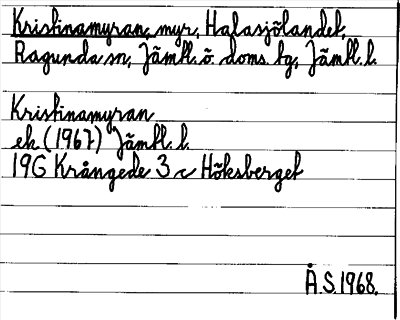 Kristinamyran, myr, Halasjölandet,
Ragunda sn, Jämtl. ö. doms. bg, Jämtl. l.
Kristinamyran
ek (1967) Jämtl. l.
19G Krångede 3 c Höksberget
Å.S. 1968.